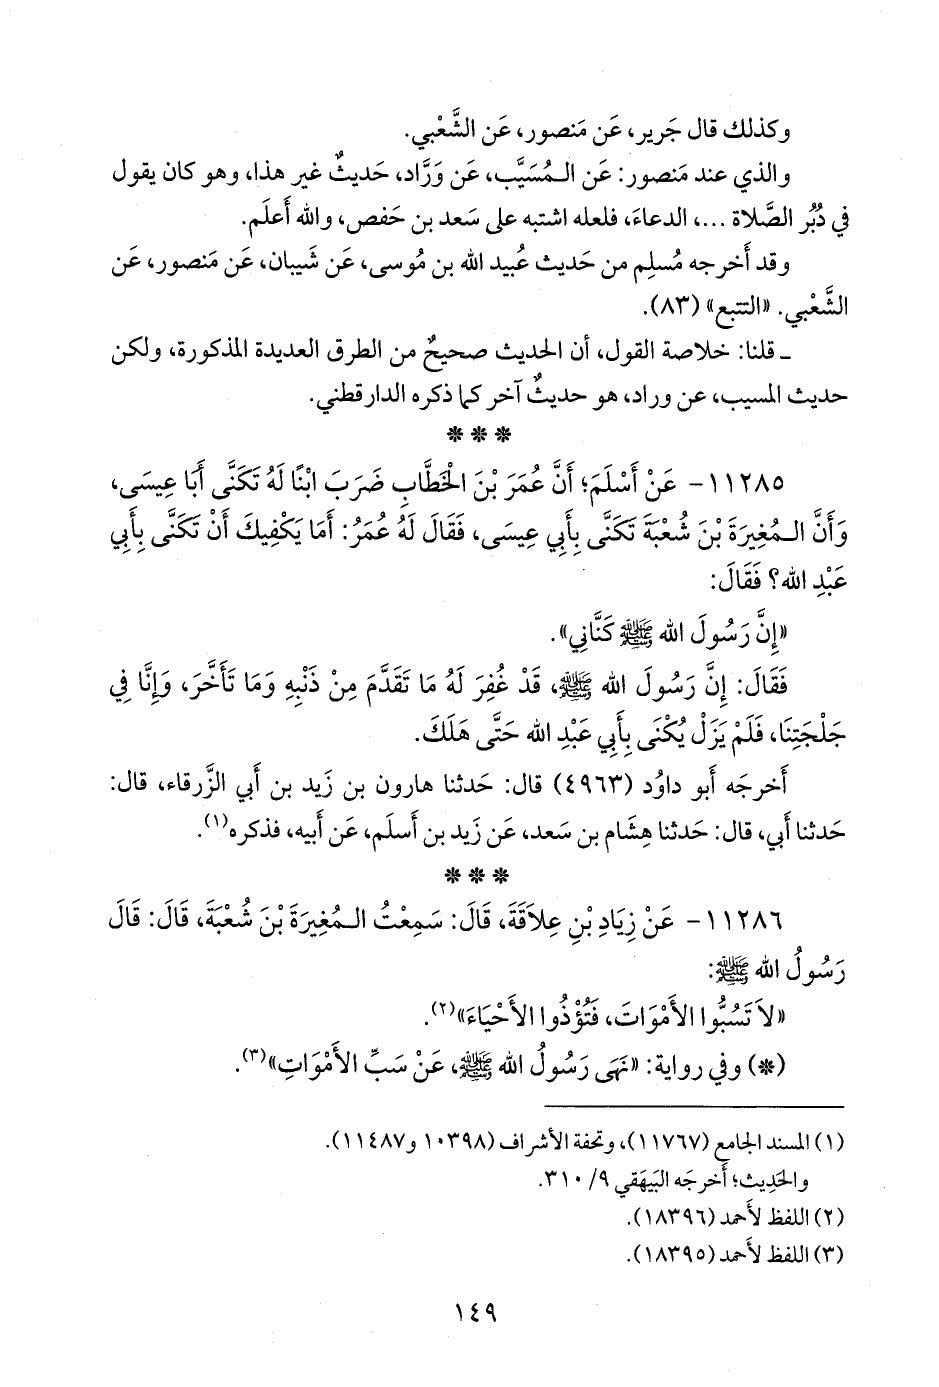 وكذلك قال جَرير، عَن مَنصور، عَن الشَّعْبي.
والذي عند مَنصور: عَن الـمُسَيَّب، عَن وَرَّاد، حَديثٌ غير هذا، وهو كان يقول
في دُبُر الصَّلاة ...، الدعاءَ، فلعله اشتبه على سَعد بن حَفص، والله أَعلَم.
وقد أَخرجه مُسلِم من حَديث عُبيد الله بن مُوسى، عَن شَيبان، عَن مَنصور، عَن
الشَّعْبي. «التتبع» (٨٣).
ـ قلنا: خلاصة القول، أن الحديث صحيحٌ من الطرق العديدة المذكورة، ولكن
حديث المسيب، عن وراد، هو حديثٌ آخر كما ذكره الدارقطني.
* * *
١١٢٨٥- عَنْ أَسْلَمَ؛ أَنَّ عُمَرَ بْنَ الْخَطَّابِ ضَرَبَ ابْنًا لَهُ تَكَنَّى أَبَا عِيسَى،
وَأَنَّ الـمُغِيرَةَ بْنَ شُعْبَةَ تَكَنَّى بِأَبِي عِيسَى، فَقَالَ لَهُ عُمَرُ: أَمَا يَكْفِيكَ أَنْ تَكَنَّى بِأَبِي
عَبْدِ الله؟ فَقَالَ:
«إِنَّ رَسُولَ الله ﷺ كَنَّانِي».
فَقَالَ: إِنَّ رَسُولَ الله ﷺ، قَدْ غُفِرَ لَهُ مَا تَقَدَّمَ مِنْ ذَنْبِهِ وَمَا تَأَخَّرَ، وَإِنَّا فِي
جَلْجَتِنَا، فَلَمْ يَزَلْ يُكْنَى بِأَبِي عَبْدِ الله حَتَّى هَلَكَ.
أَخرجَه أَبو داوُد (٤٩٦٣) قال: حَدثنا هارون بن زَيد بن أَبي الزَّرقاء، قال:
حَدثنا أَبي، قال: حَدثنا هِشَام بن سَعد، عَن زَيد بن أَسلَم، عَن أَبيه، فذكره(١).
* * *
١١٢٨٦- عَنْ زِيَادِ بْنِ عِلاَقَةَ، قَالَ: سَمِعْتُ الـمُغِيرَةَ بْنَ شُعْبَةَ، قَالَ: قَالَ
رَسُولُ الله ﷺ:
«لاَ تَسُبُّوا الأَمْوَاتَ، فَتُؤْذُوا الأَحْيَاءَ»(٢).
(*) وفي رواية: «نَهَى رَسُولُ الله ﷺ، عَنْ سَبِّ الأَمْوَاتِ»(٣).
(١) المسند الجامع (١١٧٦٧)، وتحفة الأشراف (١٠٣٩٨ و١١٤٨٧).
والحَدِيث؛ أَخرجَه البَيهَقي ٩/ ٣١٠.
(٢) اللفظ لأَحمد (١٨٣٩٦).
(٣) اللفظ لأَحمد (١٨٣٩٥).
١٤٩